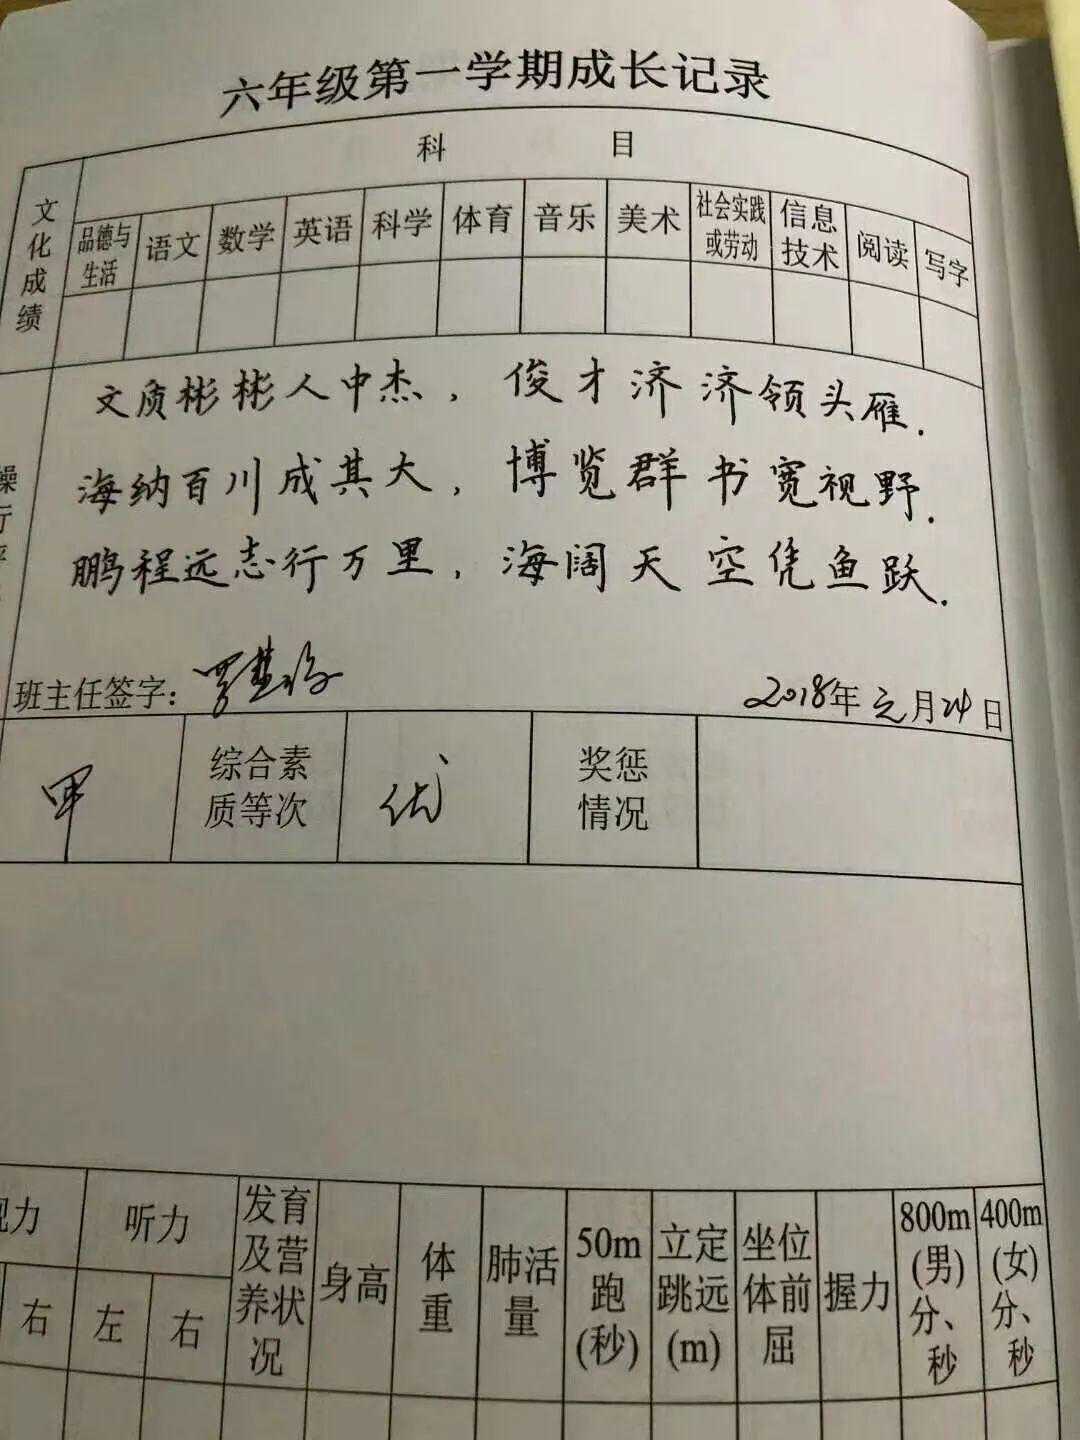 六年级第一学期成长记录
科 目
文化成绩
品德与生活 语文 数学 英语 科学 体育 音乐 美术 社会实践或劳动 信息技术 阅读 写字
文质彬彬人中杰，俊才济济领头雁.
海纳百川成其大，博览群书宽视野.
鹏程远志行万里，海阔天空凭鱼跃.
操行
班主任签字： 2018年元月24日
甲 综合素质等次 优 奖惩情况
力 听力 发育及营养状况 身高 体重 肺活量 50m跑(秒) 立定跳远(m) 坐位体前屈 握力 800m(男)分、秒 400m(女)分、秒
右 左 右